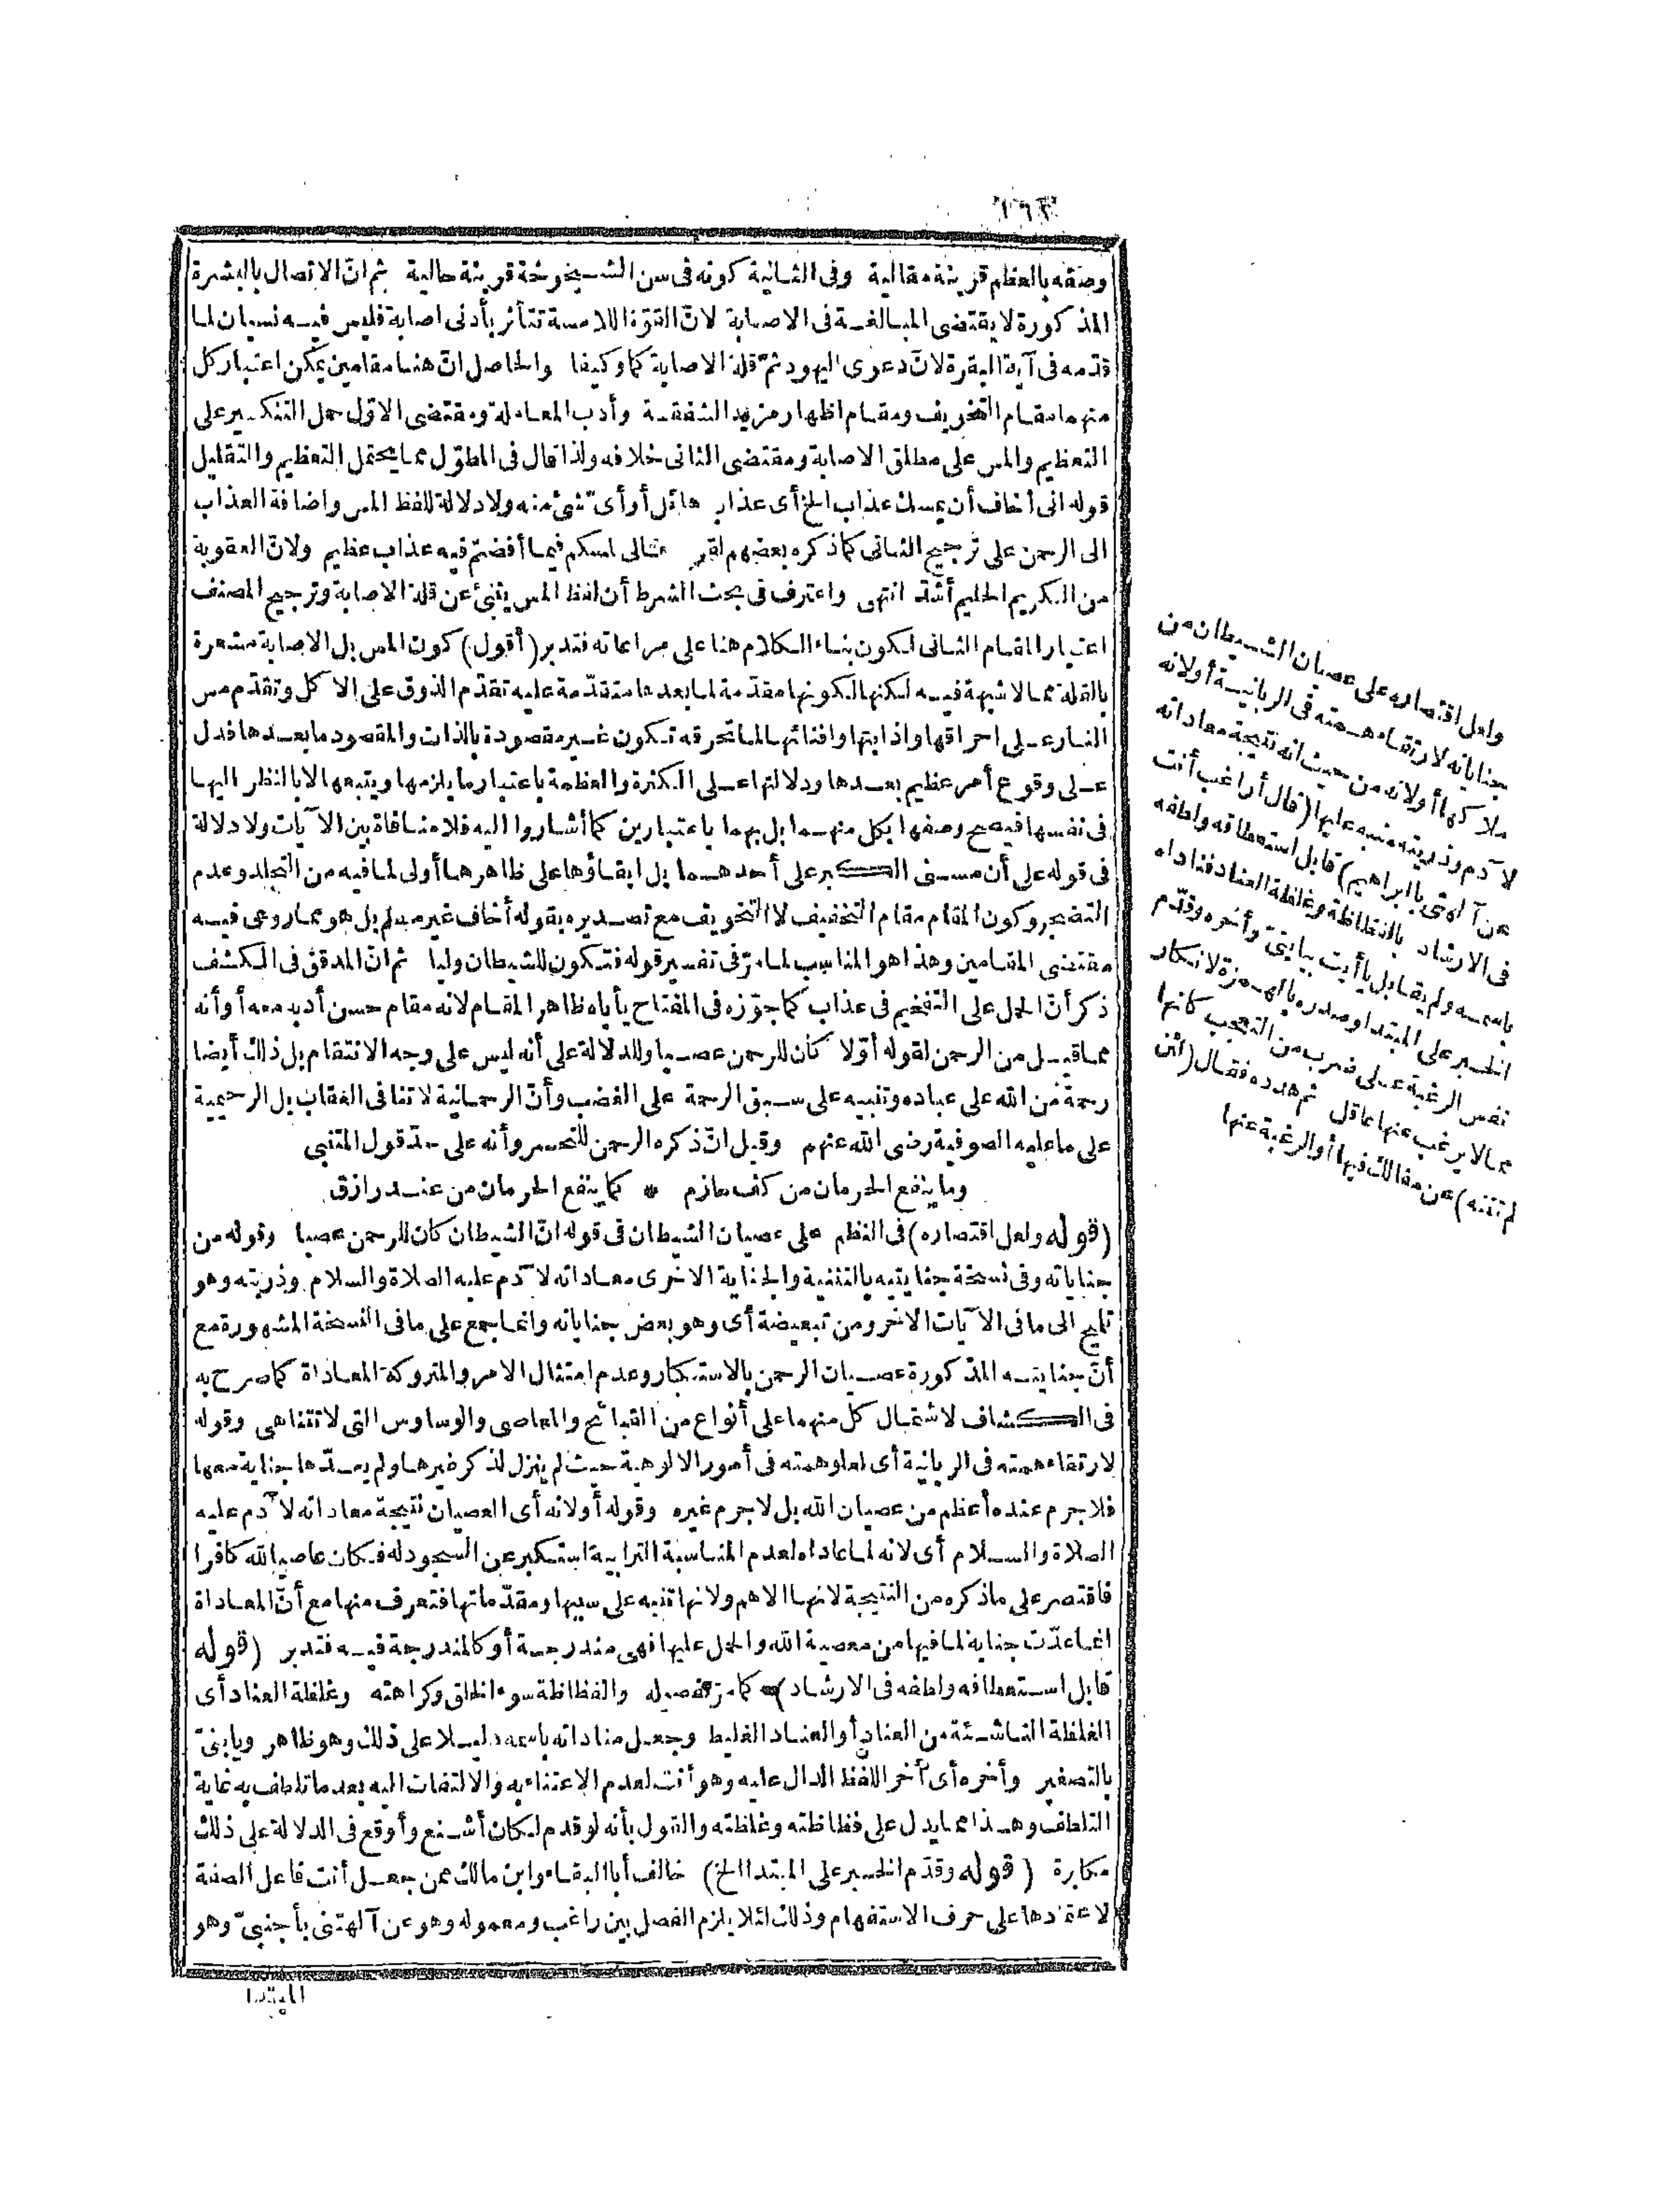 وصفه بالعظم قرينة مقالية وفى الثانية كونه فى سن الشيخوخة قرينة حالية ثم انّ الاتصال بالبشرة
المذكورة لا يقتضى المبالغة فى الاصابة لانّ القوّة اللامسة تتأثر بأدنى اصابة فليس فيه نسيان لما
قدّمه فى آية البقرة لانّ دعوى اليهود ثمّ قلة الاصابة كما وكيفا والحاصل انّ هنا مقامين يمكن اعتبار كل
منهما مقام التخويف ومقام اظهار مزيد الشفقة وأدب المعاملة ومقتضى الاوّل حمل التنكير على
التعظيم والمس على مطلق الاصابة ومقتضى الثانى خلافه ولذا قال فى المطوّل مما يحتمل التعظيم والتقليل
قوله انى أخاف أن يمسك عذاب الخ أى عذاب هائل أو أىّ شئ منه ولا دلالة للفظ المس واضافة العذاب
الى الرحمن على ترجيح الثانى كما ذكره بعضهم لقوله تعالى لمسكم فيما أفضتم فيه عذاب عظيم ولانّ العقوبة
من الكريم الحليم أشدّ انتهى واعترف فى بحث الشرط أن لفظ المس ينبئ عن قلة الاصابة وترجيح المصنف
اعتبار المقام الثانى لكون بناء الكلام هنا على مراعاته فتدبر (أقول) كون المس بل الاصابة مشعرة
بالقلة مما لا شبهة فيه لكنها لكونها مقدّمة لما بعدها متقدّمة عليه تقدّم الذوق على الاكل وتقدّم مس
النار على احراقها واذابتها وافنائها لما تحرقه تكون غير مقصودة بالذات والمقصود ما بعدها فدل
على وقوع أمر عظيم بعدها ودلالتها على الكثرة والعظمة باعتبار ما يلزمها ويتبعها لا بالنظر اليها
فى نفسها فيصح وصفها بكل منهما بل بهما باعتبارين كما أشاروا اليه فلا منافاة بين الآيات ولا دلالة
فى قوله على أن مسنى الكبر على أحدهما بل ابقاؤها على ظاهرها أولى لما فيه من التجلد وعدم
التضجر وكون المقام مقام التخفيف لا التخويف مع تصديره بقوله أخاف غير مسلم بل هو مما روعى فيه
مقتضى المقامين وهذا هو المناسب لما مرّ فى تفسير قوله فتكون للشيطان وليا ثم انّ المدقق فى الكشف
ذكر أنّ الحمل على التفخيم فى عذاب كما جوّزه فى المفتاح يأباه ظاهر المقام لانه مقام حسن أدبه معه أو أنه
مما قيل من الرحمن لقوله أوّلا كان للرحمن عصيا وللدلالة على أنه ليس على وجه الانتقام بل ذلك أيضا
رحمة من الله على عباده وتنبيه على سبق الرحمة على الغضب وأنّ الرحمانية لا تنافى العقاب بل الرحيمية
على ما عليه الصوفية رضى الله عنهم وقيل انّ ذكره الرحمن للتحسر وأنه على حدّ قول المتنبى
وما ينفع الحرمان من كف حازم * كما ينفع الحرمان من عند رازق
(قوله ولعل اقتصاره) فى النظم على عصيان الشيطان فى قوله انّ الشيطان كان للرحمن عصيا وقوله من
جناياته وفى نسخة جنايتيه بالتثنية والجناية الاخرى معاداته لآدم عليه الصلاة والسلام وذريته وهو
تلميح الى ما فى الآيات الاخر ومن تبعيضة أى وهو بعض جناياته وانما جمع على ما فى النسخة المشهورة مع
أنّ جنايته المذكورة عصيان الرحمن بالاستكبار وعدم امتثال الامر والمتروكة المعاداة كما صرح به
فى الكشاف لاشتمال كل منهما على أنواع من القبائح والمعاصى والوساوس التى لا تتناهى وقوله
لارتقاء همته فى الربانية أى لعلو همته فى أمور الالوهية حيث لم ينزل لذكر غيرها ولم يعدّها جناية معها
فلا جرم عنده أعظم من عصيان الله بل لا جرم غيره وقوله أو لانه أى العصيان نتيجة معاداته لآدم عليه
الصلاة والسلام أى لانه لما عاداه لعدم المناسبة الترابية استكبر عن السجود له فكان عاصيا لله كافرا
فاقتصر على ما ذكره من النتيجة لانها الاهم ولانها تنبه على سببها ومقدّماتها فتعرف منها مع أنّ المعاداة
انما عدّت جناية لما فيها من معصية الله والحمل عليها فهى مندرجة أو كالمندرجة فيه فتدبر (قوله
قابل استعطافه ولطفه فى الارشاد) كما مرّ تفصيله والفظاظة سوء الخلق وكراهته وغلظة العناد أى
الغلظة الناشئة من العناد أو العناد الغليظ وجعل مناداته باسمه دليلا على ذلك وهو ظاهر ويا بنىّ
بالتصغير وأخره أى أخر اللفظ الدال عليه وهو أنت لعدم الاعتناء به والالتفات اليه بعد ما تلطف به غاية
التلطف وهذا مما يدل على فظاظته وغلظته والقول بأنه لو قدم لكان أشنع وأوقع فى الدلالة على ذلك
مكابرة (قوله وقدّم الخبر على المبتدا الخ) خالف أبا البقاء وابن مالك ممن جعل أنت فاعل الصفة
لاعتمادها على حرف الاستفهام وذلك لئلا يلزم الفصل بين راغب ومعموله وهو عن آلهتى بأجنبىّ وهو
المبتدا
ولعل اقتصاره على عصيان الشيطان من
جناياته لارتقاء همته فى الربانية أو لانه
ملاكها أو لانه من حيث انه نتيجة معاداته
لآدم وذريته منبه عليها (قال أراغب أنت
عن آلهتى يا ابراهيم) قابل استعطافه ولطفه
فى الارشاد بالفظاظة وغلظة العناد فناداه
باسمه ولم يقابل يا أبت بيا بنىّ وأخره وقدّم
الخبر على المبتدا وصدره بالهمزة لانكار
نفس الرغبة على ضرب من التعجب كأنها
مما لا يرغب عنها عاقل ثم هدده فقال (لئن
لم تنته) عن مقالك فيها أو الرغبة عنها